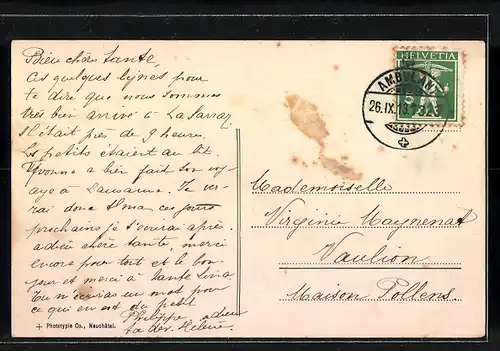 Bien chère tante,
Ces quelques lignes pour
te dire que nous sommes
très bien arrivé à La Sarraz
il était près de 9 heures.
Les petits étaient au lit.
Yvonne a bien fait son voy-
age à Lausanne. Je ver-
rai donc ces jours
prochains je t'écrirai après.
adieu chère tante, merci
encore pour tout et le bon-
jour et merci à tante Lina
Tu m'écriras un mot pour
ce qui en est du petit
Philippe, adieu
ta dev. Hélène.
+ Phototypie Co., Neuchâtel.
HELVETIA
AMBULANT
26.IX.13
Mademoiselle
Virginie Magnenat
Vaulion
Maison Pollens.